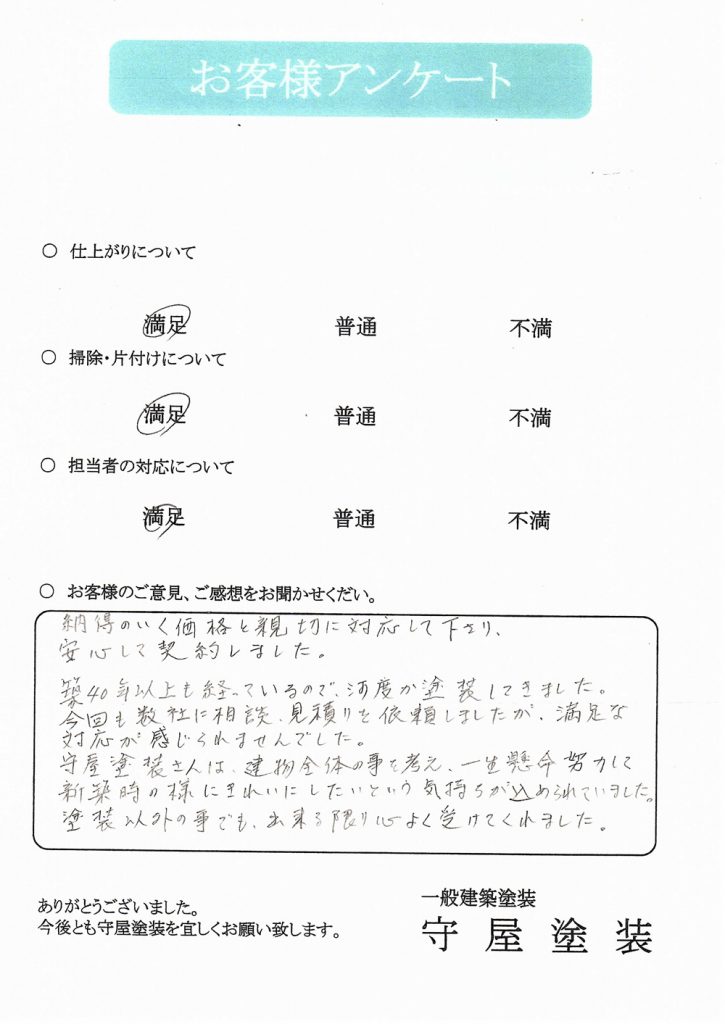 お客様アンケート
○ 仕上がりについて
満足 普通 不満
○ 掃除・片付けについて
満足 普通 不満
○ 担当者の対応について
満足 普通 不満
○ お客様のご意見、ご感想をお聞かせくだい。
納得のいく価格と親切に対応して下さり、
安心して契約しました。
築40年以上も経っているので、何度か塗装してきました。
今回も数社に相談、見積りを依頼しましたが、満足な
対応が感じられませんでした。
守屋塗装さんは、建物全体の事を考え、一生懸命努力して
新築時の様にきれいにしたいという気持ちが込められていました。
塗装以外の事でも、出来る限り心よく受けてくれました。
ありがとうございました。
今後とも守屋塗装を宜しくお願い致します。
一般建築塗装
守屋塗装